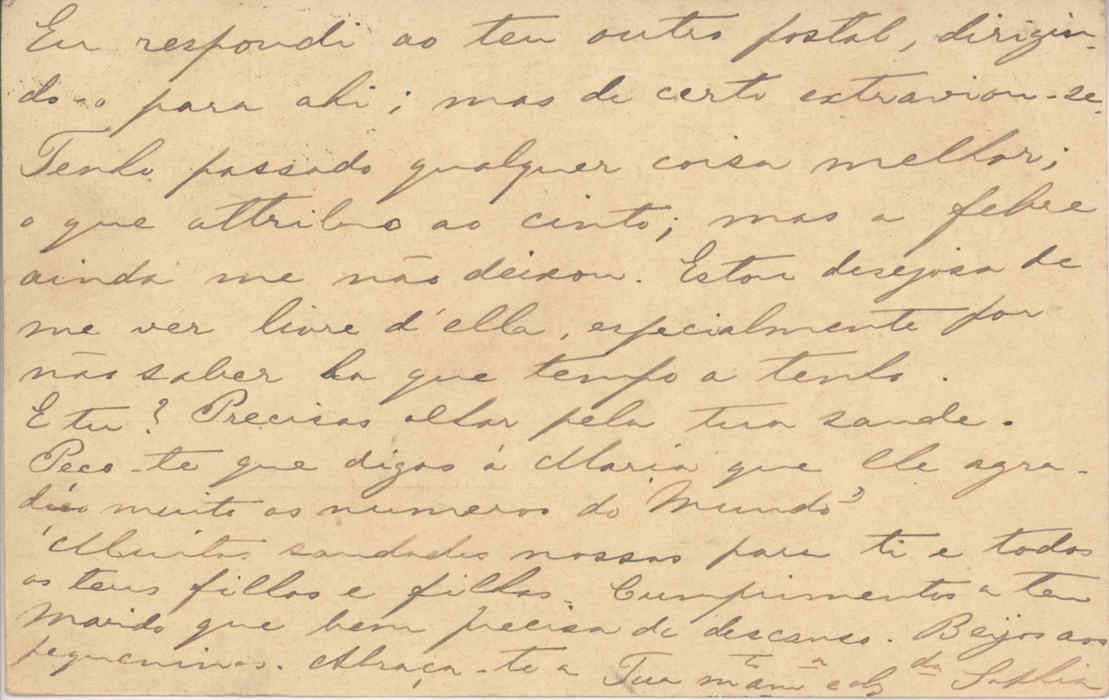 Eu respondi ao teu outro postal, dirigin-
do-o para ahi; mas de certo extraviou-se.
Tenho passado qualquer coisa melhor;
o que attribuo ao cinto; mas a febre
ainda me não deixou. Estou desejosa de
me ver livre d'ella, especialmente por
não saber ha que tempo a tenho.
E tu? Precisas olhar pela tua saude.
Peço-te que digas á Maria que lhe agra-
deço muito os numeros do "Mundo"
Muitas saudades nossas para ti e todos
os teus filhos e filhas. Cumprimentos a teu
Marido que bem precisa de descanso. Beijos aos
pequeninos. Abraça-te a Tua m.to am.a e ob.da Sophia